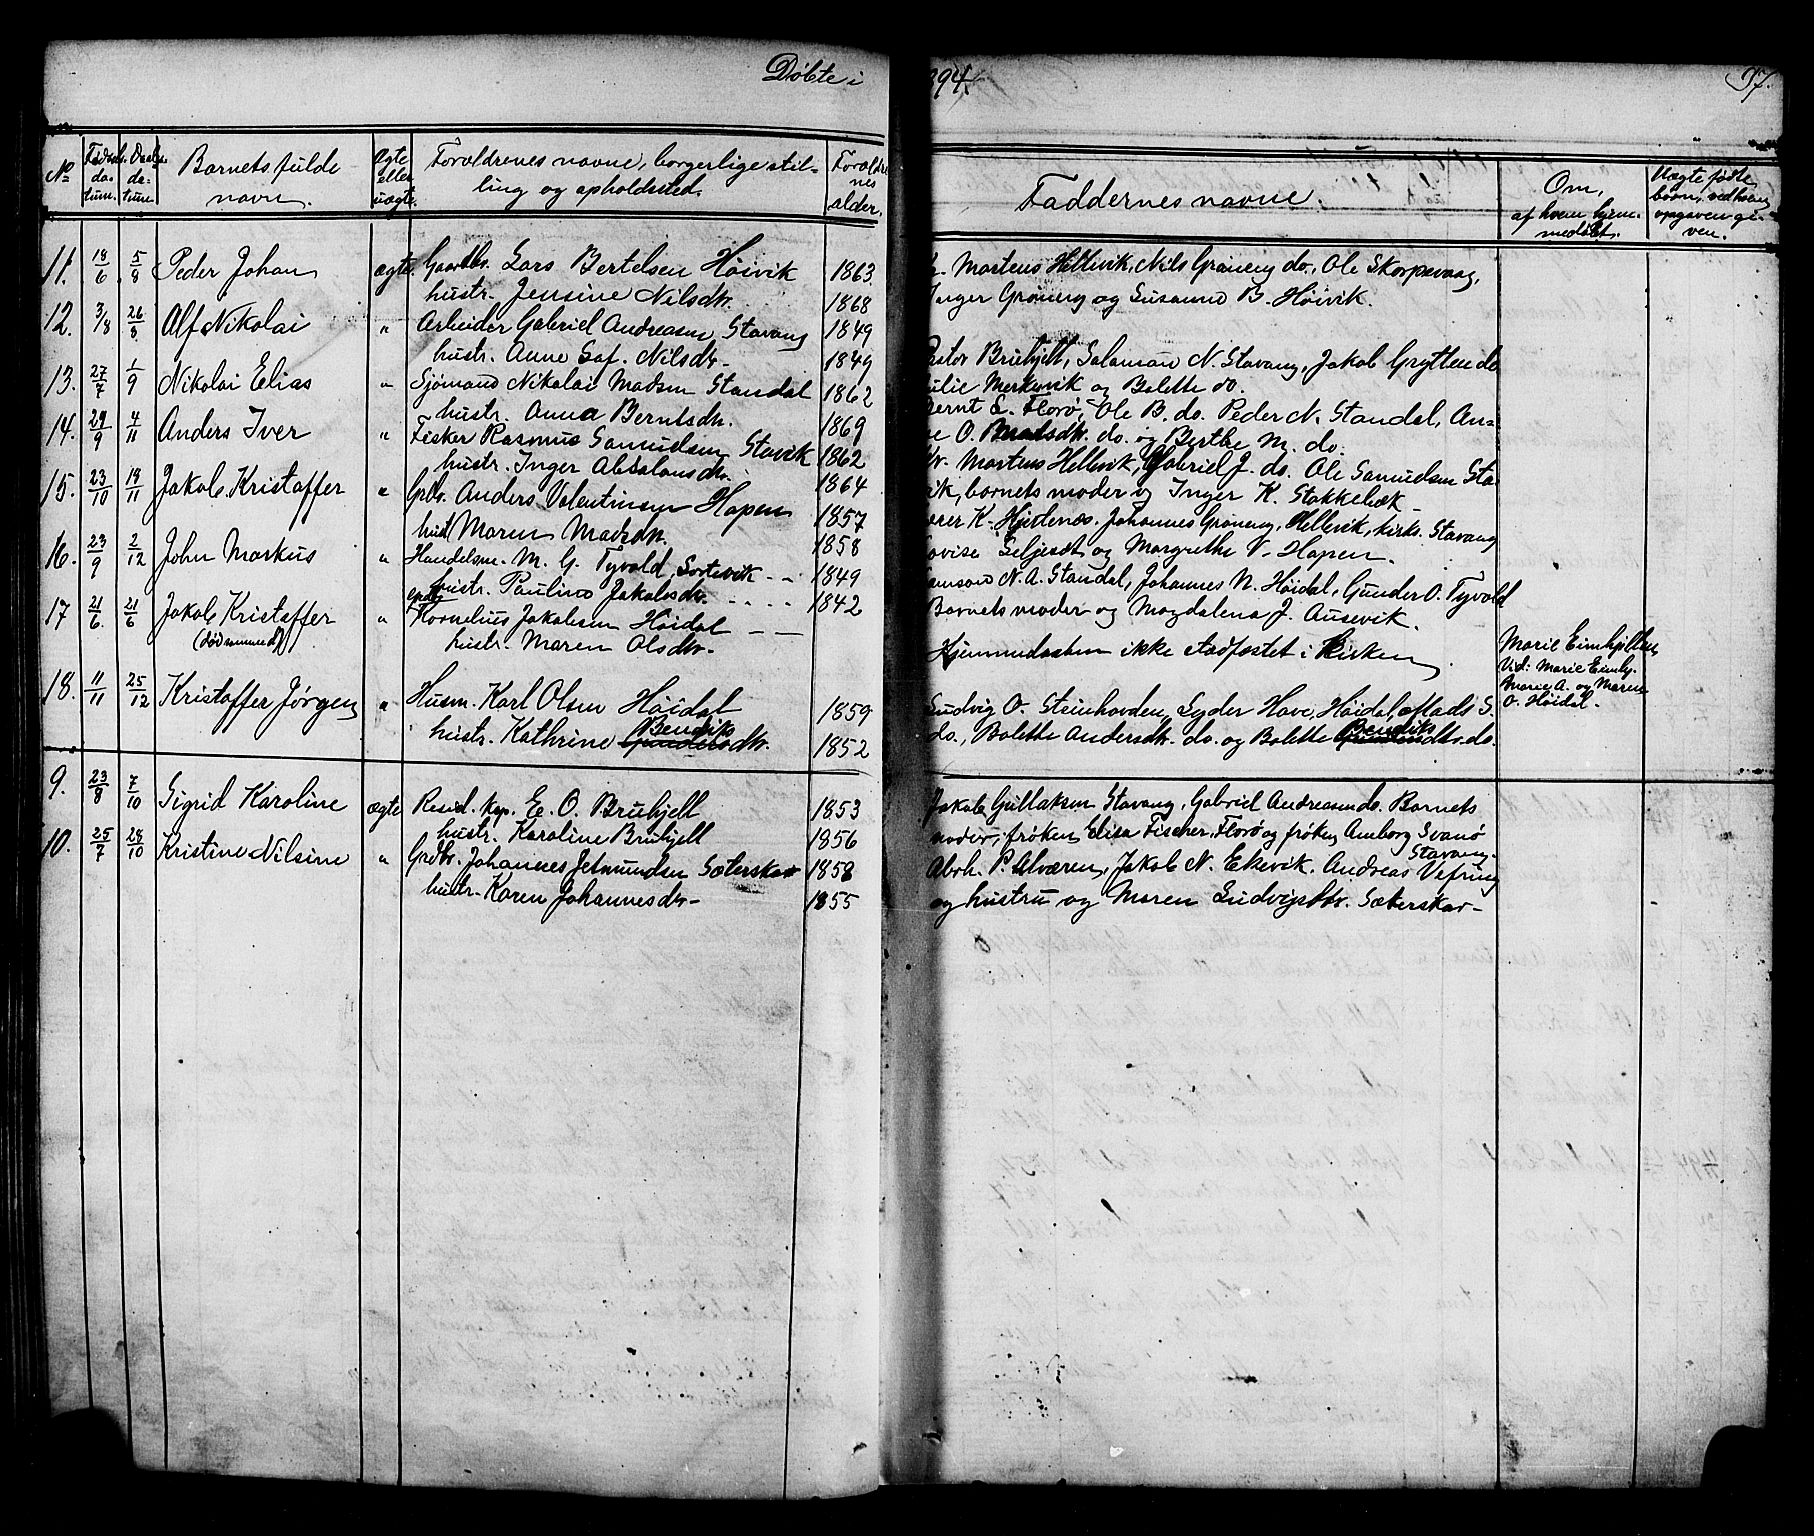 Døbte i
894.
97.
No
Fødsels da- tum.
Daabs da- tum.
Barnets fulde navn.
Ægte eller uægte.
Forældrenes navne, borgerlige stil- ling og opholdssted.
Forældre nes alder.
Faddernes navne.
Om, af hvem hjem- medøbt.
Uægte fødte børn, ved hvem opgaven gi- ven.
11. 18/6 5/8 Peder Johan ægte Gaardbr. Lars Bertelsen Høivik 1863
hustr. Jensine Nilsdtr. 1868
Martens Hellevik, Nils Grøneng do., Ole Skorpevaag,
Inger Grøneng og Susanne B. Høivik.
12. 3/8 26/8 Alf Nikolai " Arbeider Gabriel Andreasen Stavang 1849
hustr. Anne Sof. Nilsdtr. 1849
Pastor Bruhjell, Salamon N. Stavang, Jakob Grytten do
Julie Merkevik og Bolette do.
13. 27/7 1/9 Nikolai Elias " Sjømand Nikolai Madsen Standal 1862
hustr. Anna Berntsdtr. 1869
Bernt E. Florø, Ole B. do. Peder N. Standal, An-
ne O. Madsdtr. do. og Berthe M. do.
14. 29/9 4/11 Anders Iver " Fisker Rasmus Samuelsen Stavik 1862
hustr. Inger Absalonsdtr. 1864
Martens Hellevik, Gabriel J. do. Ole Samuelsen Sta-
vik, barnets moder og Inger K. Stokkebæk
15. 23/10 18/11 Jakob Kristoffer " Grdbr. Anders Valentinsen Hopen 1857
hust. Maren Madsdtr. 1858
K. Hjertenæs, Johannes Grøneng, Hellevik, kirks. Stavang
Lovise Seljeset og Margrethe V. Hopen.
16. 23/9 2/12 John Markus " Handelsm. M. G. Tyvold, Sortevik 1849
hustr. Pauline Jakobsdtr. 1842
Samson N. A. Standal, Johannes N. Høidal, Gunder O. Tyvold
Barnets moder og Magdalena J. Ausevik.
17 21/6. 21/6 Jakob Kristoffer " Kornelius Jakobsen Høidal
(død samme d.) hustr. Maren Olsdtr.
Hjemmedaaben ikke stadfæstet i Kirken
Marie Eimhjellen
Vid: Marie Eimhj.
Marie A. og Maren
O. Høidal.
18. 11/11 25/12 Kristoffer Jørgen " Husm. Karl Olsen Høidal 1859
Bendiks
hustr. Kathrine Gundersdtr. 1852
Ludvig O. Steinhovden, Lyder Have, Høidal, Mads S.
Bendiks
do., Bolette Andersdtr. do. og Bolette Gundersdtr. do.
9. 23/8 7/10 Sigrid Karoline ægte Resid. kap. E. O. Bruhjell 1853
hustr. Karoline Bruhjell 1856
Jakob Gullaksen Stavang, Gabriel Andreasen do. Barnets
moder, frøken Elisa Fischer, Florø og frøken Amborg Svanø
Stavang.
10. 25/7 28/10 Kristine Nilsine " Grdbr. Johannes Jetmundsen Sæterskar 1858
hustr. Karen Johannesdtr. 1855
Abrh. P. Alværen, Jakob N. Ekevik. Andreas Vefring
og hustru og Maren Ludvigsdtr. Sæterskar